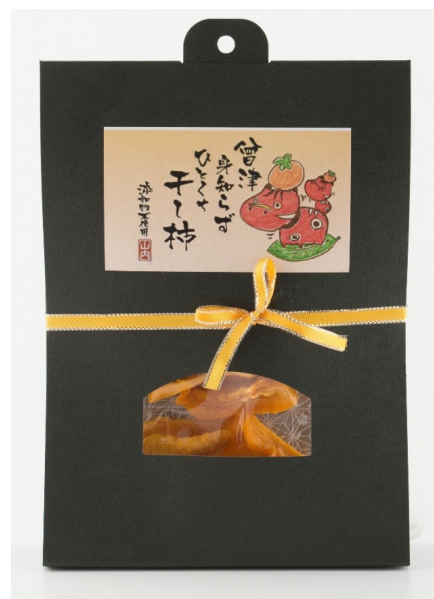 會津
身知らず
ひとくち
干し柿
添加物不使用
山内